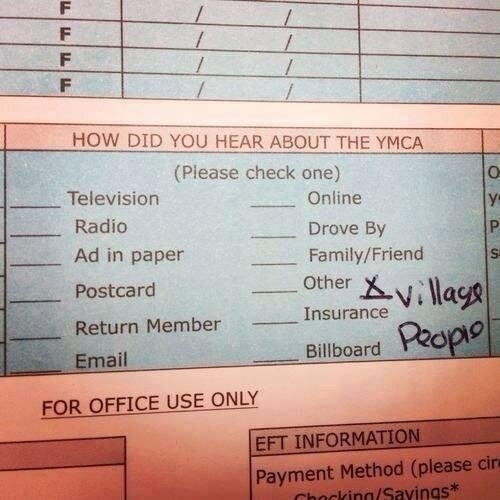 F / /
F / /
F / /
F / /
HOW DID YOU HEAR ABOUT THE YMCA
(Please check one)
___ Television ___ Online
___ Radio ___ Drove By
___ Ad in paper ___ Family/Friend
___ Postcard ___ Other X Village
___ Return Member ___ Insurance People
___ Email ___ Billboard
FOR OFFICE USE ONLY
EFT INFORMATION
Payment Method (please cir
Checking/Savings*